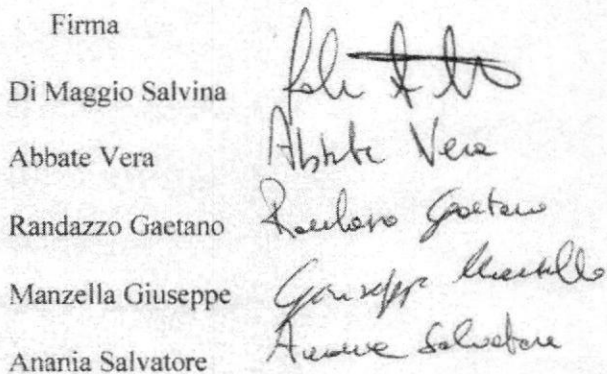 Firma
Di Maggio Salvina
Abbate Vera Abbate Vera
Randazzo Gaetano Randazzo Gaetano
Manzella Giuseppe Giuseppe Manzella
Anania Salvatore Anania Salvatore